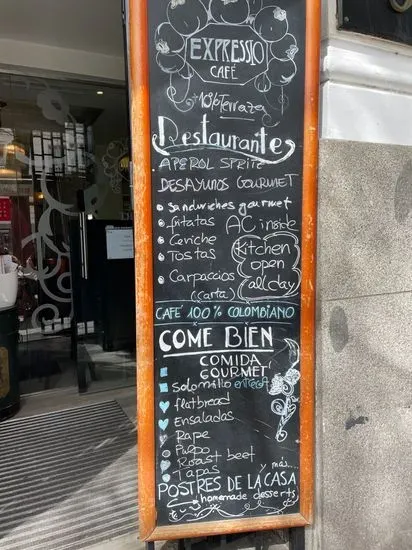 EXPRESSIO
CAFÉ
10% Terraza
Restaurante
APEROL SPRITZ
DESAYUNOS GOURMET
Sandwiches gourmet
fritatas
AC inside
Ceviche
Tostas
Kitchen
open
all day
Carpaccios
(carta)
CAFÉ 100% COLOMBIANO
COME BIEN
COMIDA
GOURMET
Solomillo
flatbread
Ensaladas
Rape
Pulpo
Roast beef
Tapas
y más....
POSTRES DE LA CASA
homemade desserts